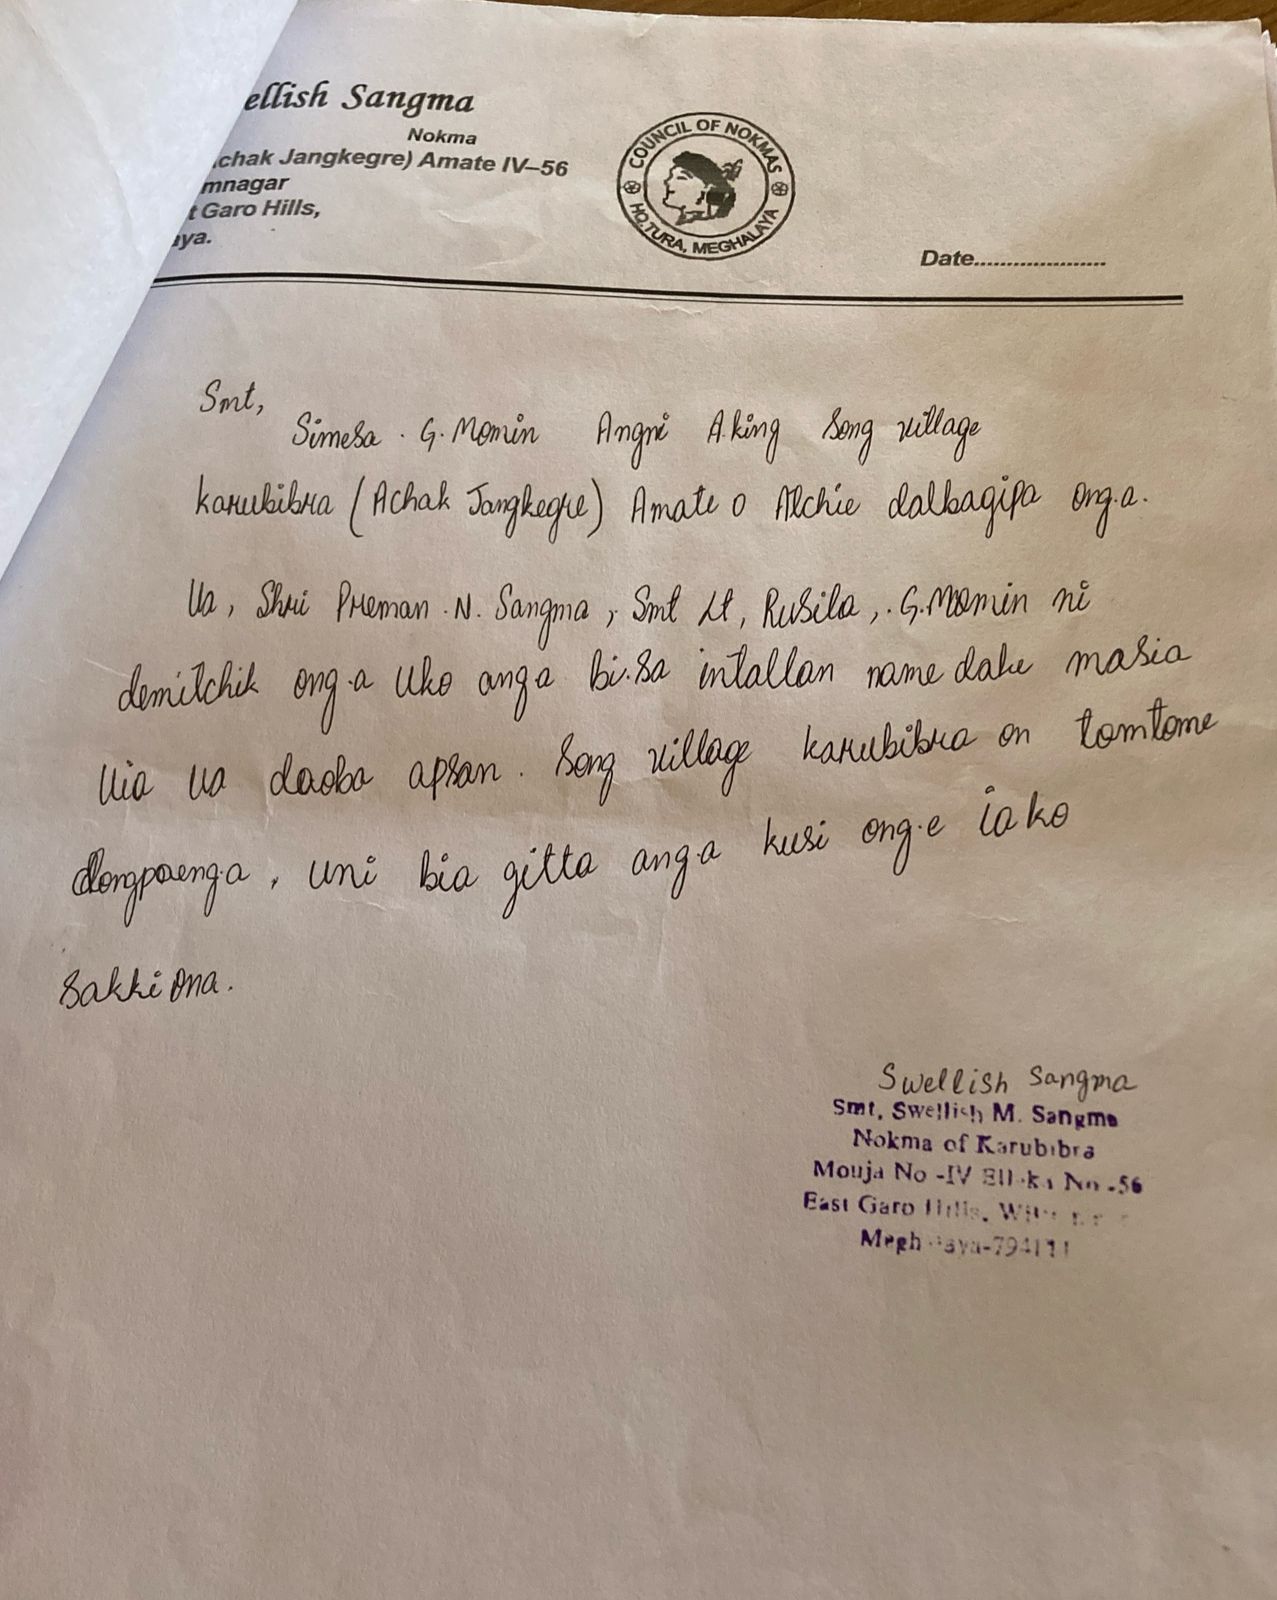 ellish Sangma
Nokma
chak Jangkegre) Amate IV–56
mnagar
t Garo Hills,
aya.
COUNCIL OF NOKMAS
HQ.TURA, MEGHALAYA
Date....................
Smt,
Simesa . G. Momin Angni A.king Song village
karubibra (Achak Jangkegre) Amate o Alchie dalbagipa ong.a.
Ua, Shri Preman .N. Sangma, Smt Lt, Rusila, . G.Momin ni
demitchik ong.a Uko anga bi.sa intallan name dake masia
Uia ua daoba apsan. Song village karubibra on tomtome
dongpaenga, uni bia gitta anga kusi ong.e iako
sakki ona.
Swellish Sangma
Smt, Swellish M. Sangma
Nokma of Karubibra
Mouja No -IV No -56
East Garo Hills,